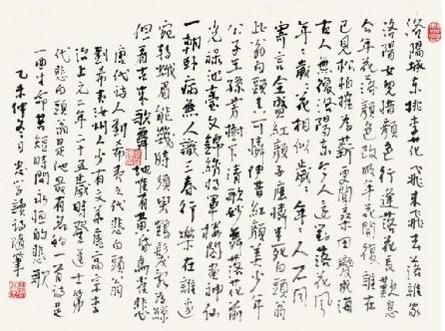 洛陽城東桃李花飛來飛去落誰家
洛陽女兒惜顏色行逢落花長嘆息
今年花落顏色改明年花開復誰在
已見松柏摧為薪更聞桑田變成海
古人無復洛陽東今人還對落花風
年年歲歲花相似歲歲年年人不同
寄言全盛紅顏子應憐半死白頭翁
此翁白頭真可憐伊昔紅顏美少年
公子王孫芳樹下清歌妙舞落花前
光祿池臺文錦繡將軍樓閣畫神仙
一朝臥病無人識三春行樂在誰邊
宛轉蛾眉能幾時須臾鶴髮亂如絲
但看古來歌舞地唯有黃昏鳥雀悲
唐代詩人劉希夷之代悲白頭翁
劉希夷汝州人少有文采高宗李
治上元二年二十五歲時登進士第
代悲白頭翁是他最有名的一首詩是
一曲生命苦短時間永恒的悲歌
乙未仲冬讀詩隨筆